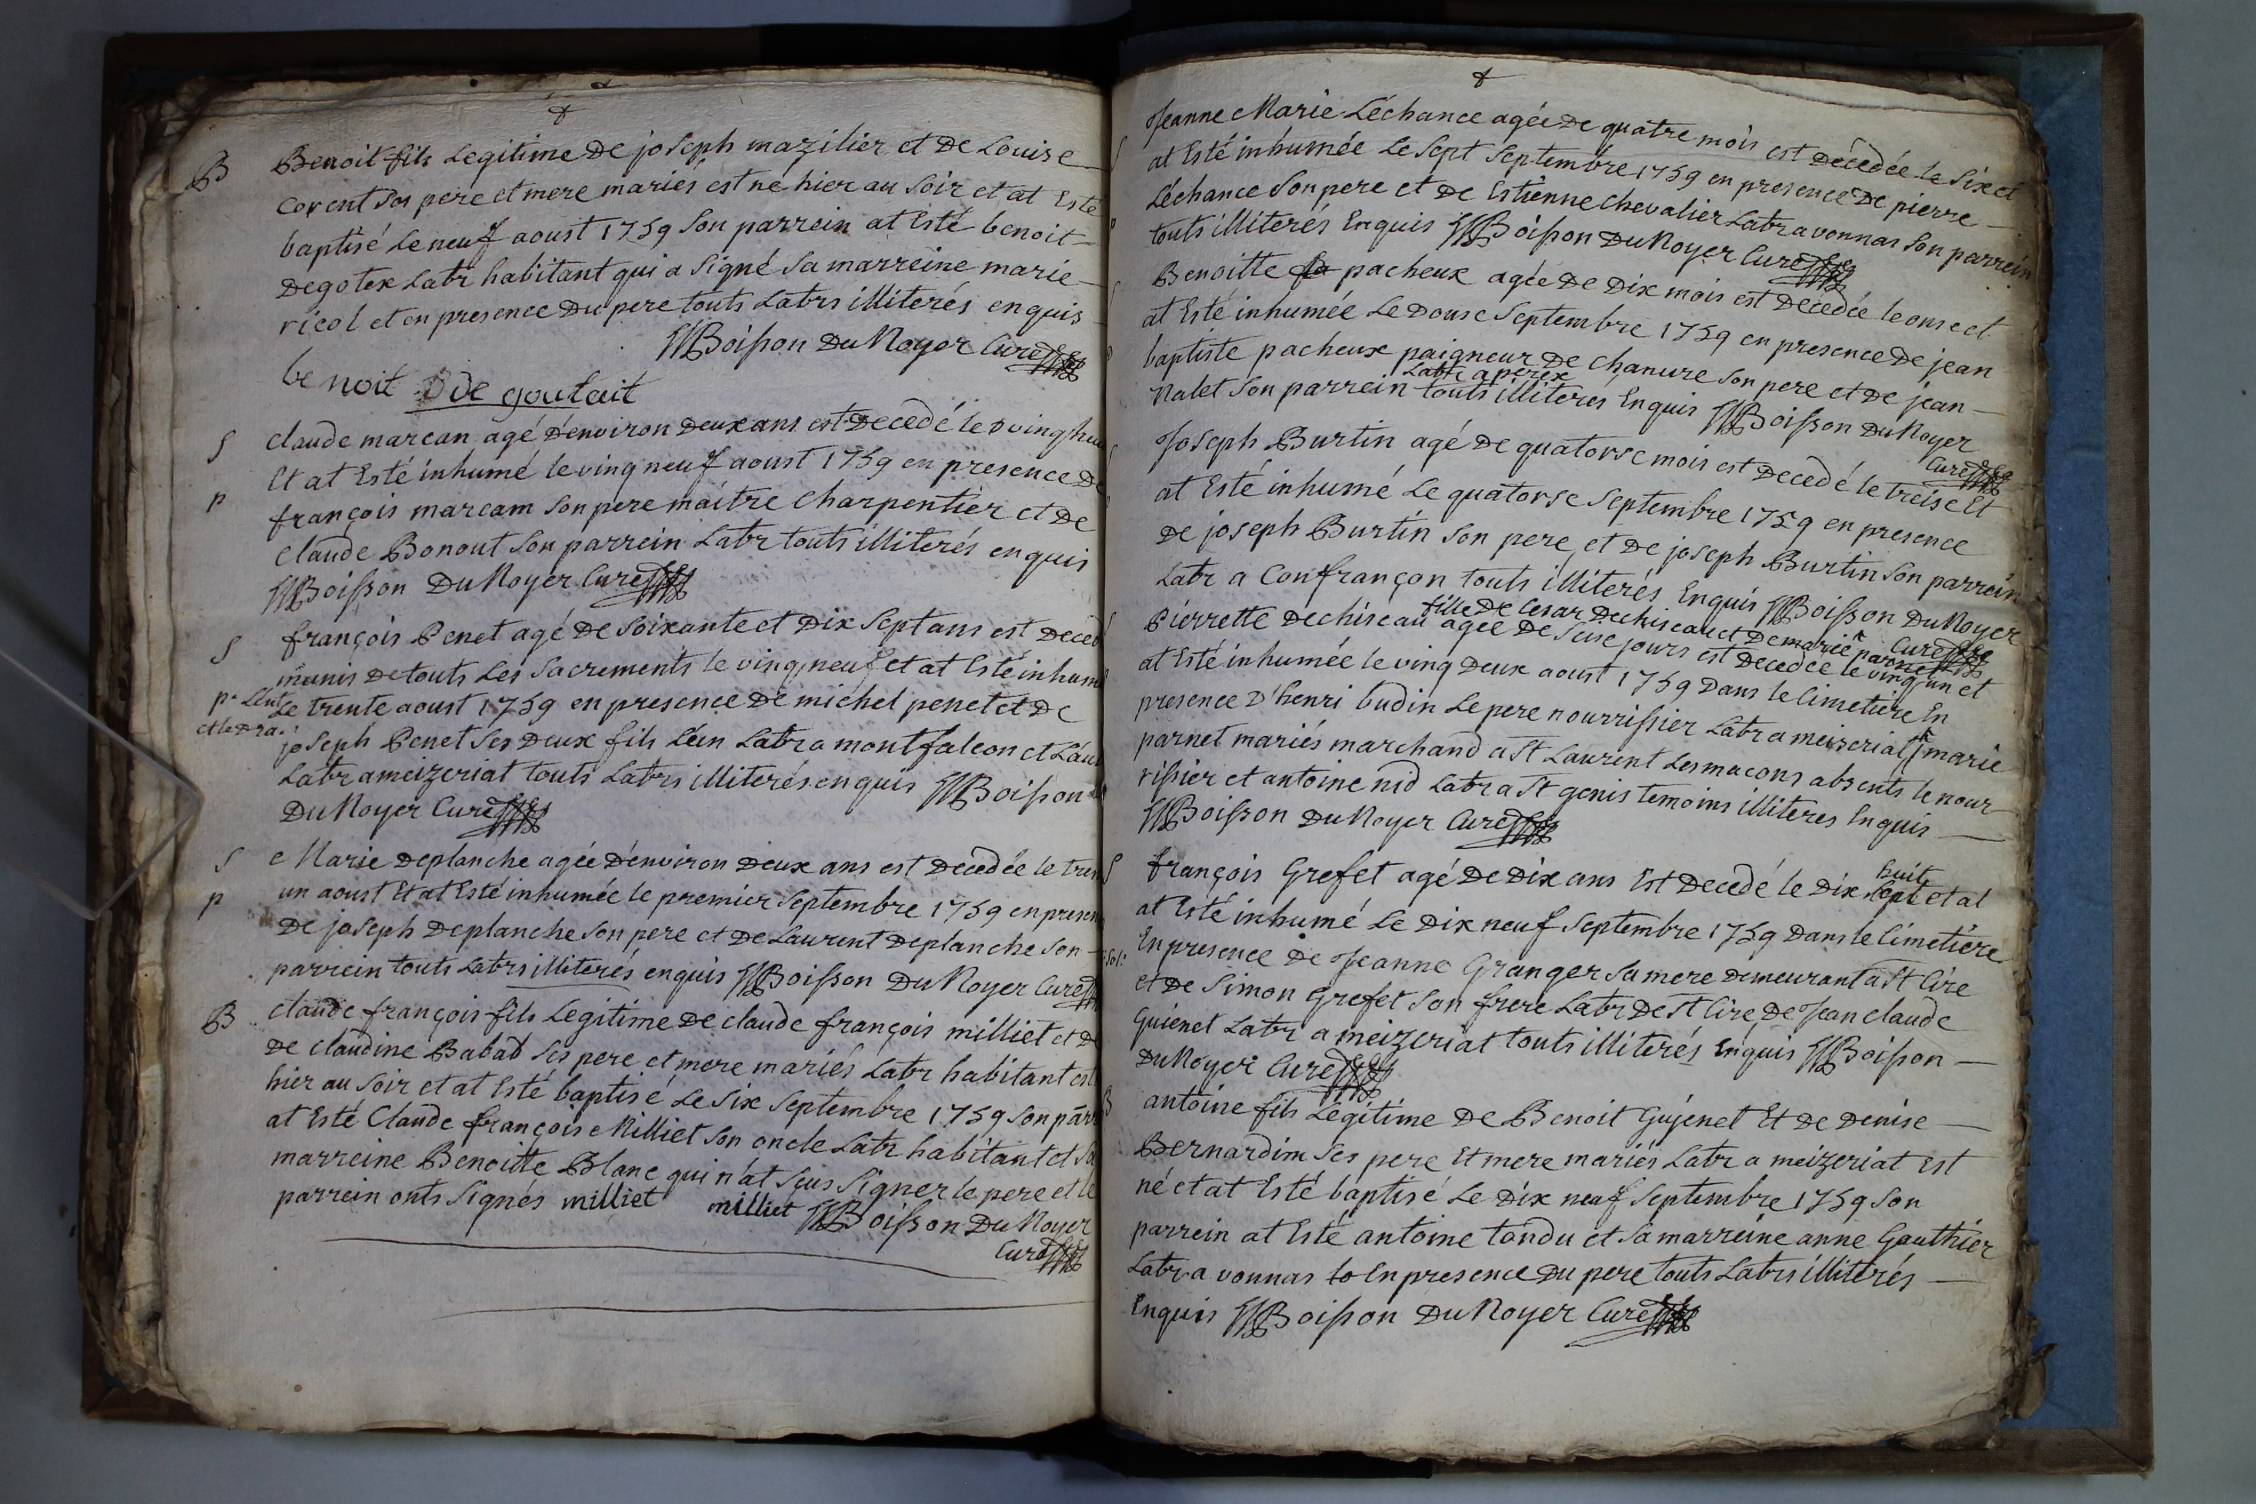 B Benoit fils Legitime De joseph mazilier et De Louise
Corent Ses pere et mere mariés est né hier au soir et at Esté
baptisé Le neuf aoust 1759 Son parrein at Esté benoit
Degotex Labr habitant qui a Signé Sa marreine marie
ricol et en presence Du pere touts Labrs illiterés enquis
Boisson Du Noyer Curé
benoit De goutait
S Claude marcan agé D'environ Deux ans est Decedé le
p Et at Esté inhumé le vingneuf aoust 1759 en presence De
françois marcam Son pere maitre Charpentier et De
Claude Bonout Son parrein Labr touts illiterés enquis
Boisson Du Noyer Curé
S françois Penet agé De Soixante et Dix Sept ans est
munis De touts Les Sacrements le vingneuf et at Esté
Le trente aoust 1759 en presence De michel penet et De
joseph Penet Ses Deux fils L'un Labr a montfalcon et
Labr a meizeriat touts Labrs illiterés enquis Boisson
Du Noyer Curé
S Marie Deplanche agée D'environ Deux ans est Decedée le
p un aoust Et at Esté inhumée le premier Septembre 1759 en
De joseph Deplanche Son pere et De Laurent Deplanche Son
parrein touts Labrs illiterés enquis Boisson Du Noyer Curé
B Claude françois fils Legitime De claude françois milliet et
De claudine Babad Ses pere et mere mariés Labr habitant
hier au Soir et at Esté baptisé Le Six Septembre 1759 Son
at Esté Claude françois Milliet Son oncle Labr habitant et Sa
marreine Benoitte Blanc qui n'at Sçus Signer le pere et le
parrein onts Signés milliet milliet Boisson Du Noyer
Curé
Jeanne Marie Léchance agée De quatre mois est Decedée le Six et
at Esté inhumée Le Sept Septembre 1759 en presence De pierre
Léchance Son pere et De Estienne Chevalier Labr a vonnas Son parrein
touts illiterés Enquis Boisson Du Noyer Curé
Benoitte pacheux agée De Dix mois est Decedée le onse et
at Esté inhumée Le Douse Septembre 1759 en presence De jean
baptiste pacheux paigneur De Chanure Son pere et De jean
Labr a perex
Nalet Son parrein touts illiterés Enquis Boisson Du Noyer
Curé
Joseph Burtin agé De quatorse mois est Decedé le treise Et
at Esté inhumé Le quatorse Septembre 1759 en presence
De joseph Burtin Son pere, et De joseph Burtin Son parrein
Labr a Confrançon touts illiterés Enquis Boisson Du Noyer
Curé
fille De Cesar Dechiseau et De marie parnet
Pierrette Dechiseau agée De Seise jours est Decedée le vingun et
at Esté inhumée le ving Deux aoust 1759 Dans le Cimetiere En
presence D'henri budin Le pere nourrissier Labr a meizeriat marie
parnet mariés marchand a St Laurent Lesmacons absents le nour
rissier et antoine nid Labr a St genis temoins illiteres Enquis
Boisson Du Noyer Curé
huit
S françois Grefet agé De Dix ans Est Decedé le Dix Sept et at
at Esté inhumé Le Dix neuf Septembre 1759 Dans le Cimetiere
En presence De Jeanne Granger Sa mere Demeurant a St Cire
et De Simon Grefet Son frere Labr De St Cire, De Jean claude
Guienet Labr a meizeriat touts illiterés Enquis Boisson
Du Noyer Curé
B antoine fils Légitime De Benoit Gujenet Et De Denise
Bernardim Ses pere Et mere mariés Labr a meizeriat Est
né et at Esté baptisé Le Dix neuf Septembre 1759 Son
parrein at Esté antoine tondu et Sa marreine anne Gauthier
Labr a vonnas En presence Du pere touts Labrs illiterés
Enquis Boisson Du Noyer Curé